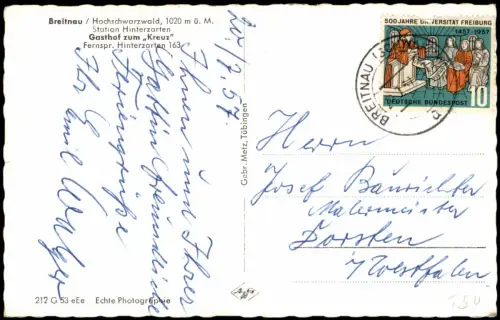 Breitnau / Hochschwarzwald, 1020 m ü. M.
Station Hinterzarten
Gasthof zum „Kreuz"
Fernspr. Hinterzarten 163
20./7.57
Ihnen und Ihrer
Gattin freundliche
Feriengrüße
Ihr Emil
Gebr. Metz, Tübingen
500 JAHRE UNIVERSITÄT FREIBURG
1457-1957
DEUTSCHE BUNDESPOST
10
BREITNAU
Herrn
Josef
Malermeister
Dorsten
i/Westfalen
212 G 53 eEe Echte Photographie